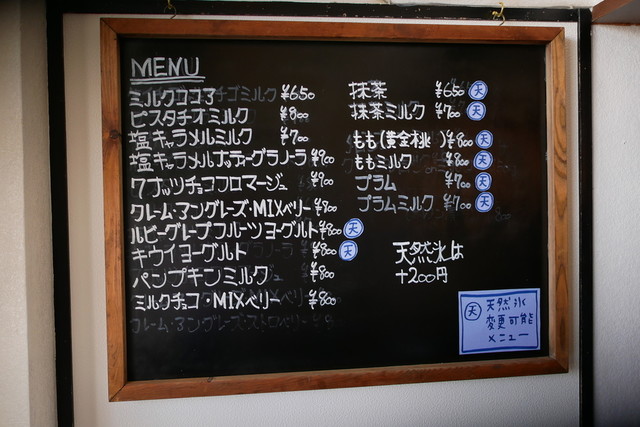 MENU
ミルクココア ¥650
ピスタチオミルク ¥800
塩キャラメルミルク ¥700
塩キャラメルナッティーグラノーラ ¥900
クアナッツチョコフロマージュ ¥900
クレーム・アングレーズ・MIXベリー ¥900
ルビーグレープフルーツヨーグルト ¥800 天
キウイヨーグルト ¥800 天
パンプキンミルク ¥800
ミルクチョコ・MIXベリー ¥800
クレーム・アングレーズ・ストロベリー
抹茶 ¥650 天
抹茶ミルク ¥700 天
もも(黄金桃 ) ¥800 天
ももミルク ¥800 天
プラム ¥700 天
プラムミルク ¥700 天
天然氷は
+200円
天 天然氷
変更可能
メニュー